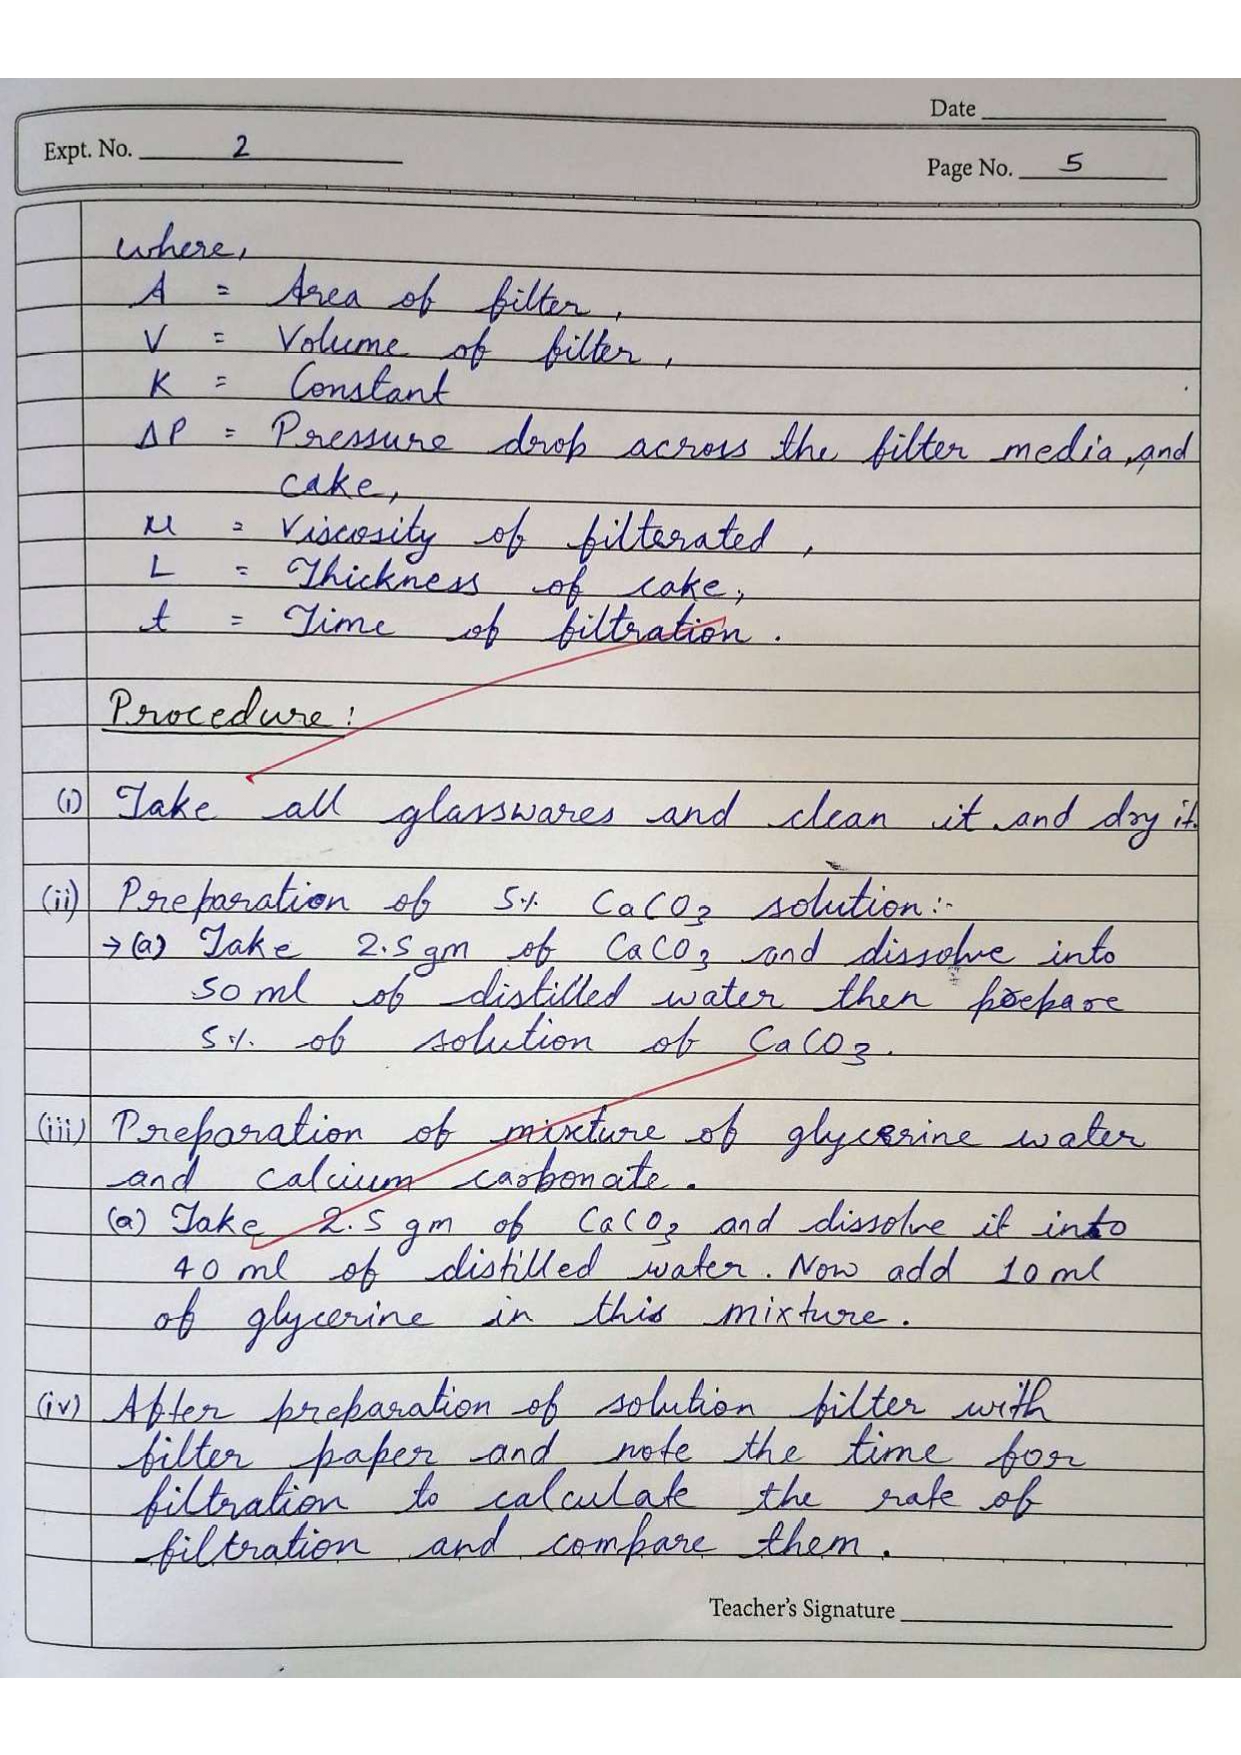 Date
Expt. No. 2
Page No. 5
where,
A = Area of filter,
V = Volume of filter,
K = Constant
ΔP = Pressure drop across the filter media and
cake,
μ = Viscosity of filterated,
L = Thickness of cake,
t = Time of filtration.
Procedure:
(i) Take all glasswares and clean it and dry it.
(ii) Preparation of 5% CaCO₃ solution:-
→ (a) Take 2.5 gm of CaCO₃ and dissolve into
50 ml of distilled water then prepare
5% of solution of CaCO₃.
(iii) Preparation of mixture of glycerine water
and calcium carbonate.
(a) Take 2.5 gm of CaCO₃ and dissolve it into
40 ml of distilled water. Now add 10 ml
of glycerine in this mixture.
(iv) After preparation of solution filter with
filter paper and note the time for
filtration to calculate the rate of
filtration and compare them.
Teacher's Signature